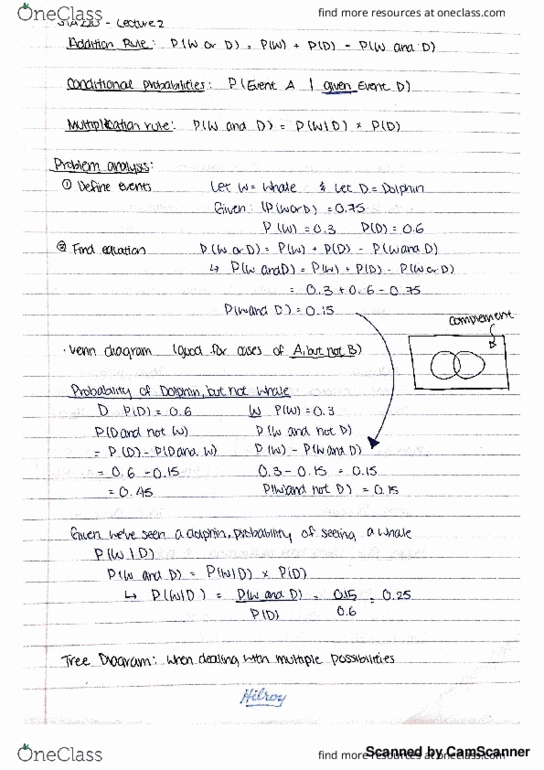 OneClass
find more resources at oneclass.com
- Lecture 2
Addition Rule: P(W or D) = P(W) + P(D) - P(W and D)
Conditional probabilities: P(Event A | given Event D)
Multiplication rule: P(W and D) = P(W|D) × P(D)
Problem analysis:
① Define events Let W = Whale & Let D = Dolphin
Given: P(W or D) = 0.75
P(W) = 0.3 P(D) = 0.6
② Find equation P(W or D) = P(W) + P(D) - P(W and D)
↳ P(W and D) = P(W) + P(D) - P(W or D)
= 0.3 + 0.6 - 0.75
P(W and D) = 0.15
complement
· Venn diagram (good for cases of A, but not B)
Probability of Dolphin, but not Whale
D P(D) = 0.6 W P(W) = 0.3
P(D and not W) P(W and not D)
= P(D) - P(D and W) P(W) - P(W and D)
= 0.6 - 0.15 0.3 - 0.15 = 0.15
= 0.45 P(W and not D) = 0.15
Given we've seen a dolphin, probability of seeing a whale
P(W|D)
P(W and D) = P(W|D) × P(D)
↳ P(W|D) = P(W and D) = 0.15 = 0.25
P(D) 0.6
Tree Diagram: when dealing with multiple possibilities
Hilroy
OneClass
find more resources at oneclass.com
Scanned by CamScanner